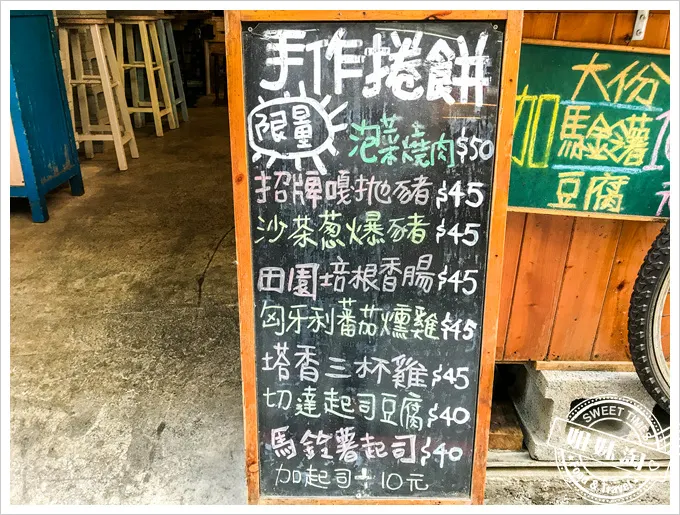 手作捲餅
限量
泡菜燒肉$50
招牌嘎拋豬$45
沙茶蔥爆豬$45
田園培根香腸$45
匈牙利蕃茄燻雞$45
塔香三杯雞$45
切達起司豆腐$40
馬鈴薯起司$40
加起司+10元
大份
加 馬鈴薯
豆腐
元
SWEET TIME
Food & Travel